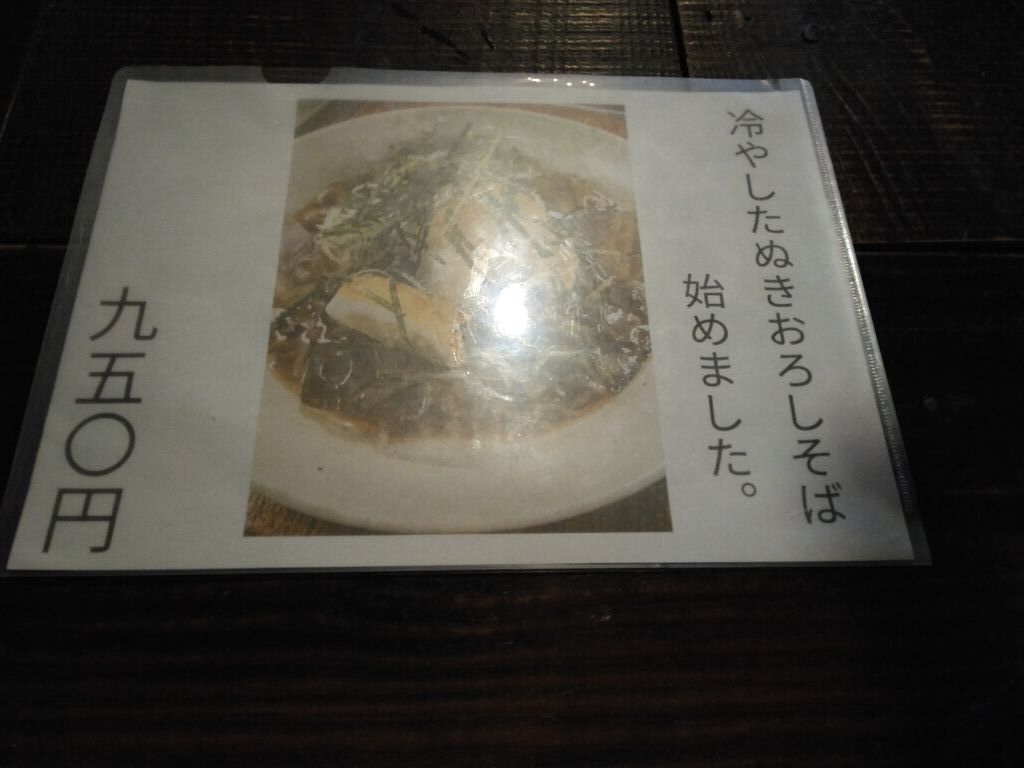 冷やしたぬきおろしそば
始めました。
九五〇円